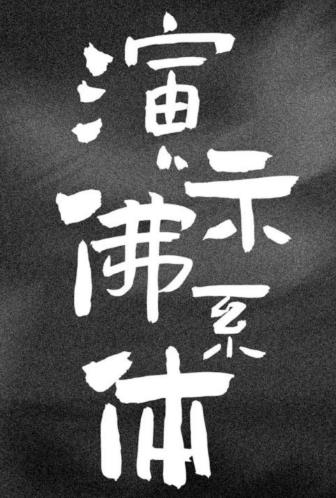 演示
佛系
体